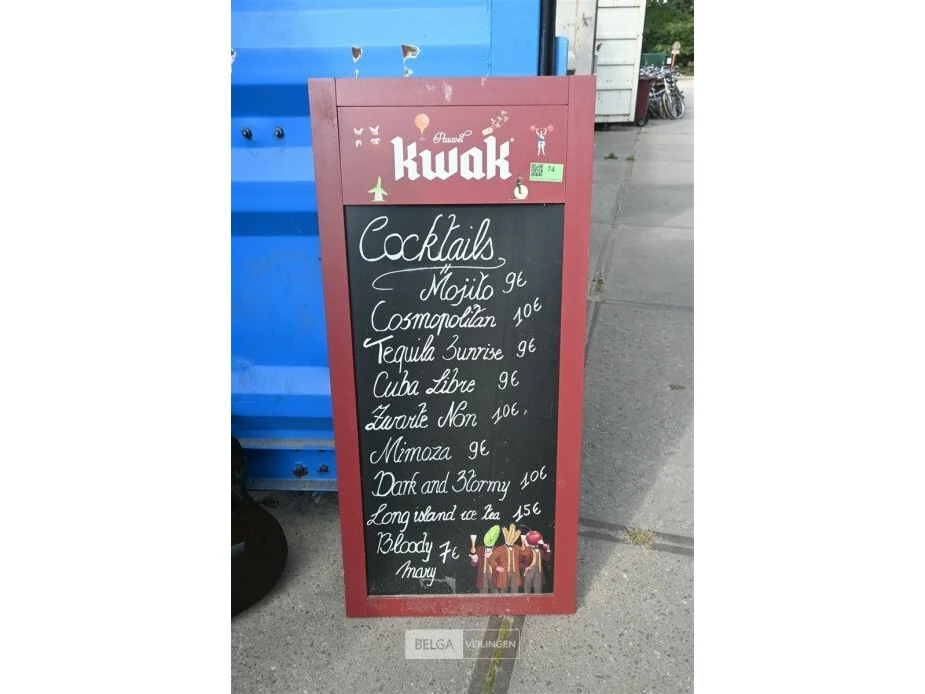 Pauwel
kwak
74
Cocktails
Mojito 9€
Cosmopolitan 10€
Tequila Sunrise 9€
Cuba Libre 9€
Zwarte Non 10€.
Mimoza 9€
Dark and Stormy 10€
Long island ice tea 15€
Bloody 7€
mary
BELGA VEILINGEN